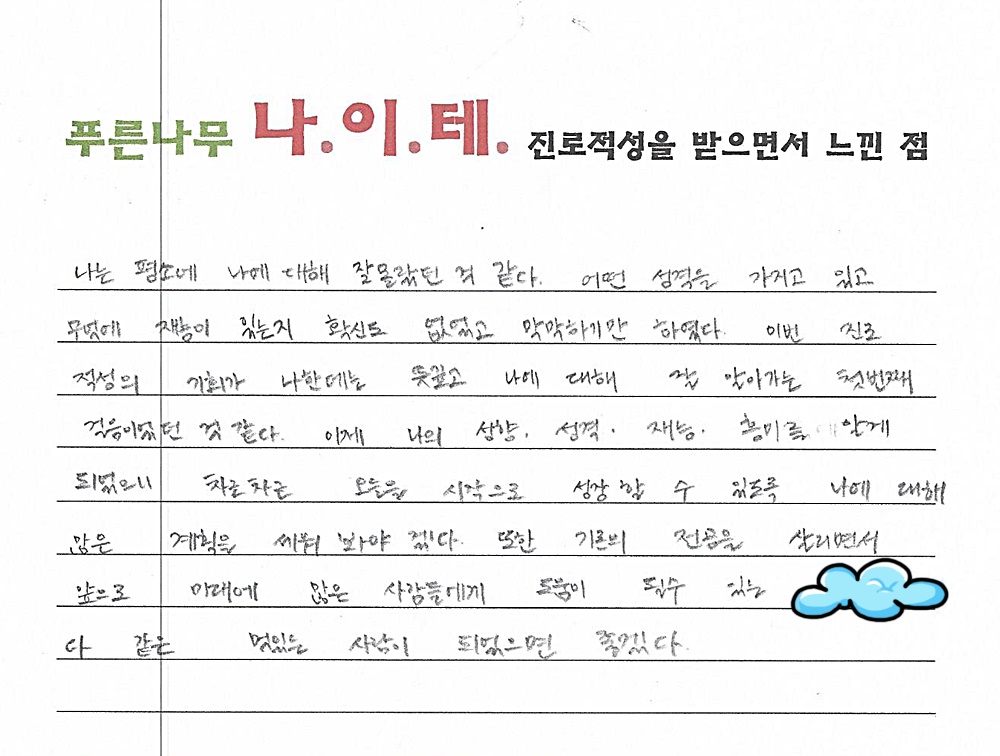 푸른나무 나.이.테. 진로적성을 받으면서 느낀 점
나는 평소에 나에 대해 잘 몰랐던 것 같다. 어떤 성격을 가지고 있고
무엇에 재능이 있는지 확신도 없었고 막막하기만 하였다. 이번 진로
적성의 기회가 나한테는 뜻깊고 나에 대해 잘 알아가는 첫번째
걸음이었던 것 같다. 이제 나의 성향. 성격. 재능. 흥미를 알게
되었으니 차근차근 오늘을 시작으로 성장 할 수 있도록 나에 대해
많은 계획을 세워 봐야 겠다. 또한 기존의 전공을 살리면서
앞으로 미래에 많은 사람들에게 도움이 될수 있는
다 같은 멋있는 사람이 되었으면 좋겠다.